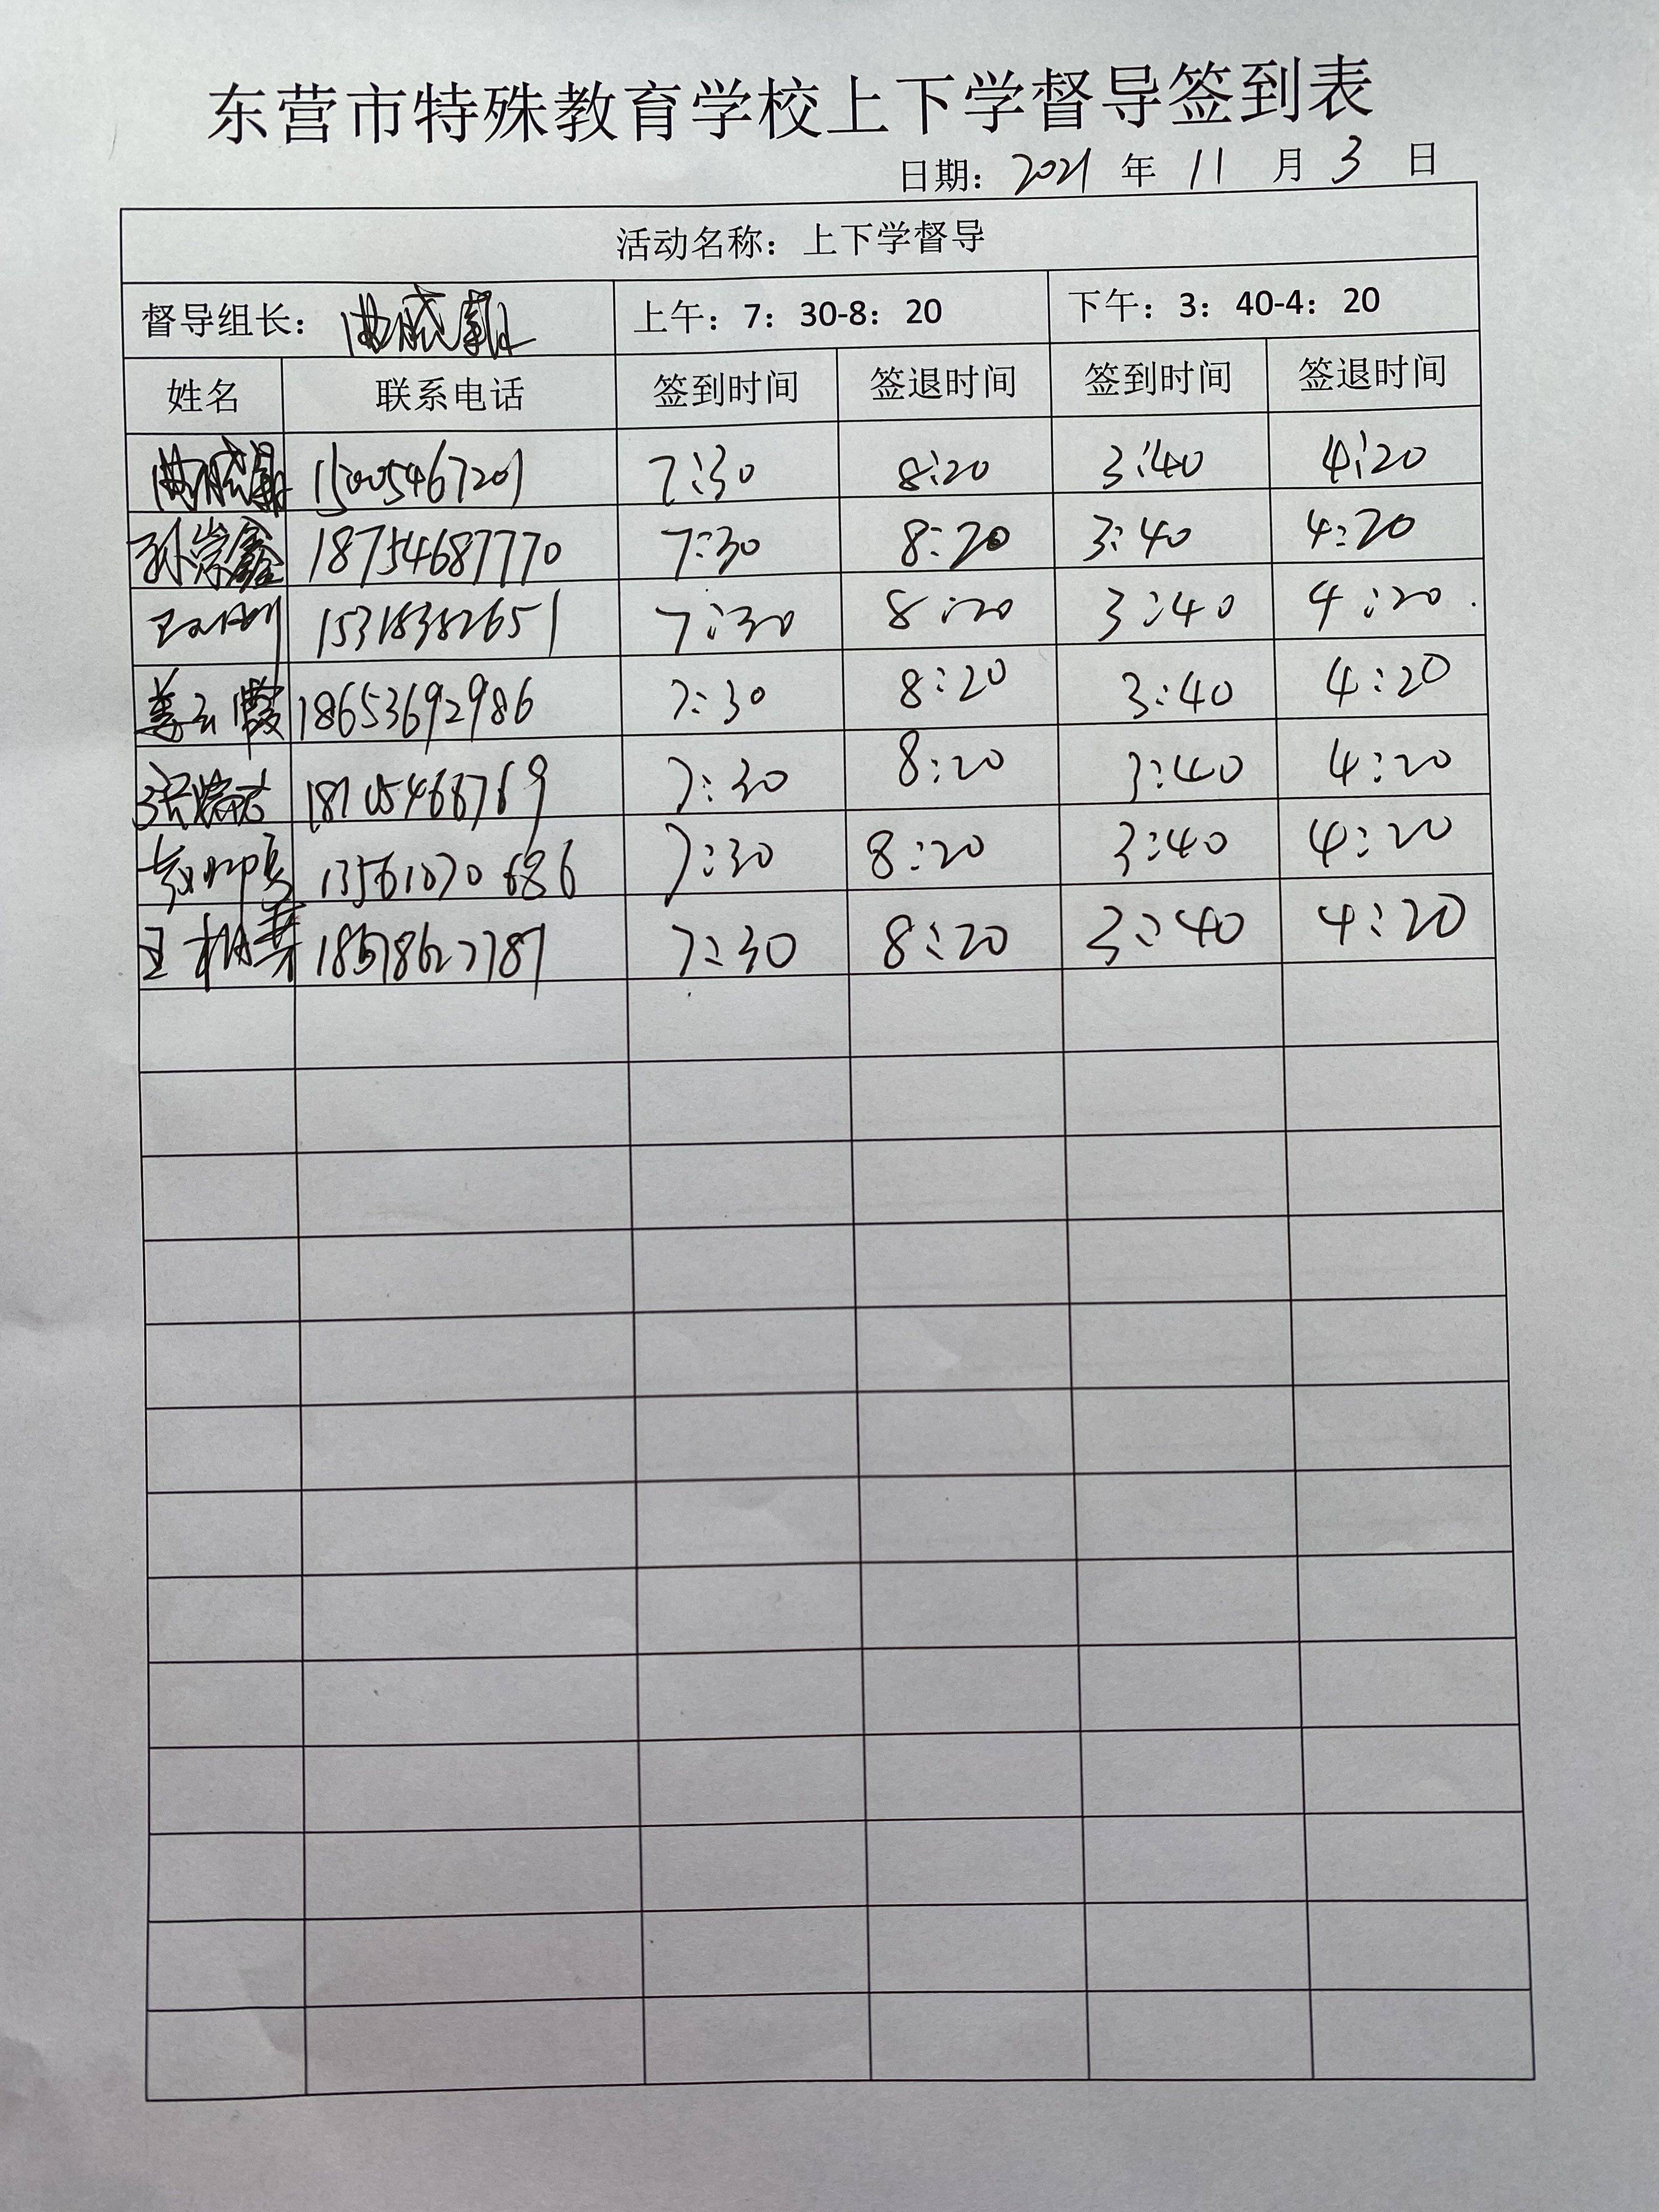 东营市特殊教育学校上下学督导签到表
日期: 2021 年 11 月 3 日
活动名称: 上下学督导
督导组长: 上午: 7: 30-8: 20 下午: 3: 40-4: 20
姓名 联系电话 签到时间 签退时间 签到时间 签退时间
15005467201 7:30 8:20 3:40 4:20
孙崇鑫 18754687770 7:30 8:20 3:40 4:20
15318382651 7:30 8:20 3:40 4:20
姜云霞 18653692986 7:30 8:20 3:40 4:20
7:30 8:20 3:40 4:20
13561070686 7:30 8:20 3:40 4:20
7:30 8:20 3:40 4:20